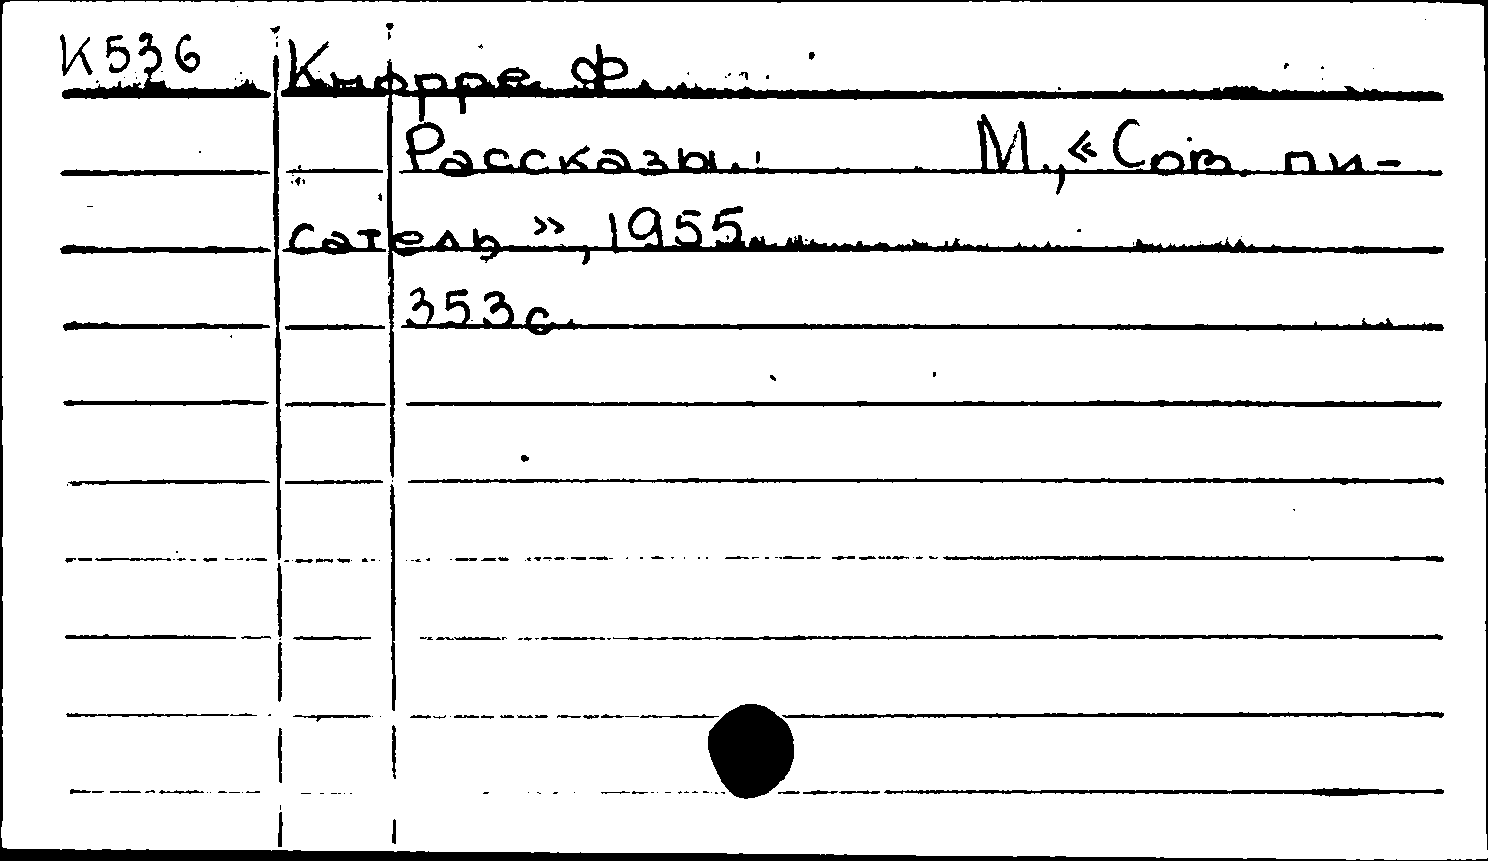 К536 Кнорре Ф.
Рассказы. М., «Сов. пи-
сатель», 1955
353 с.